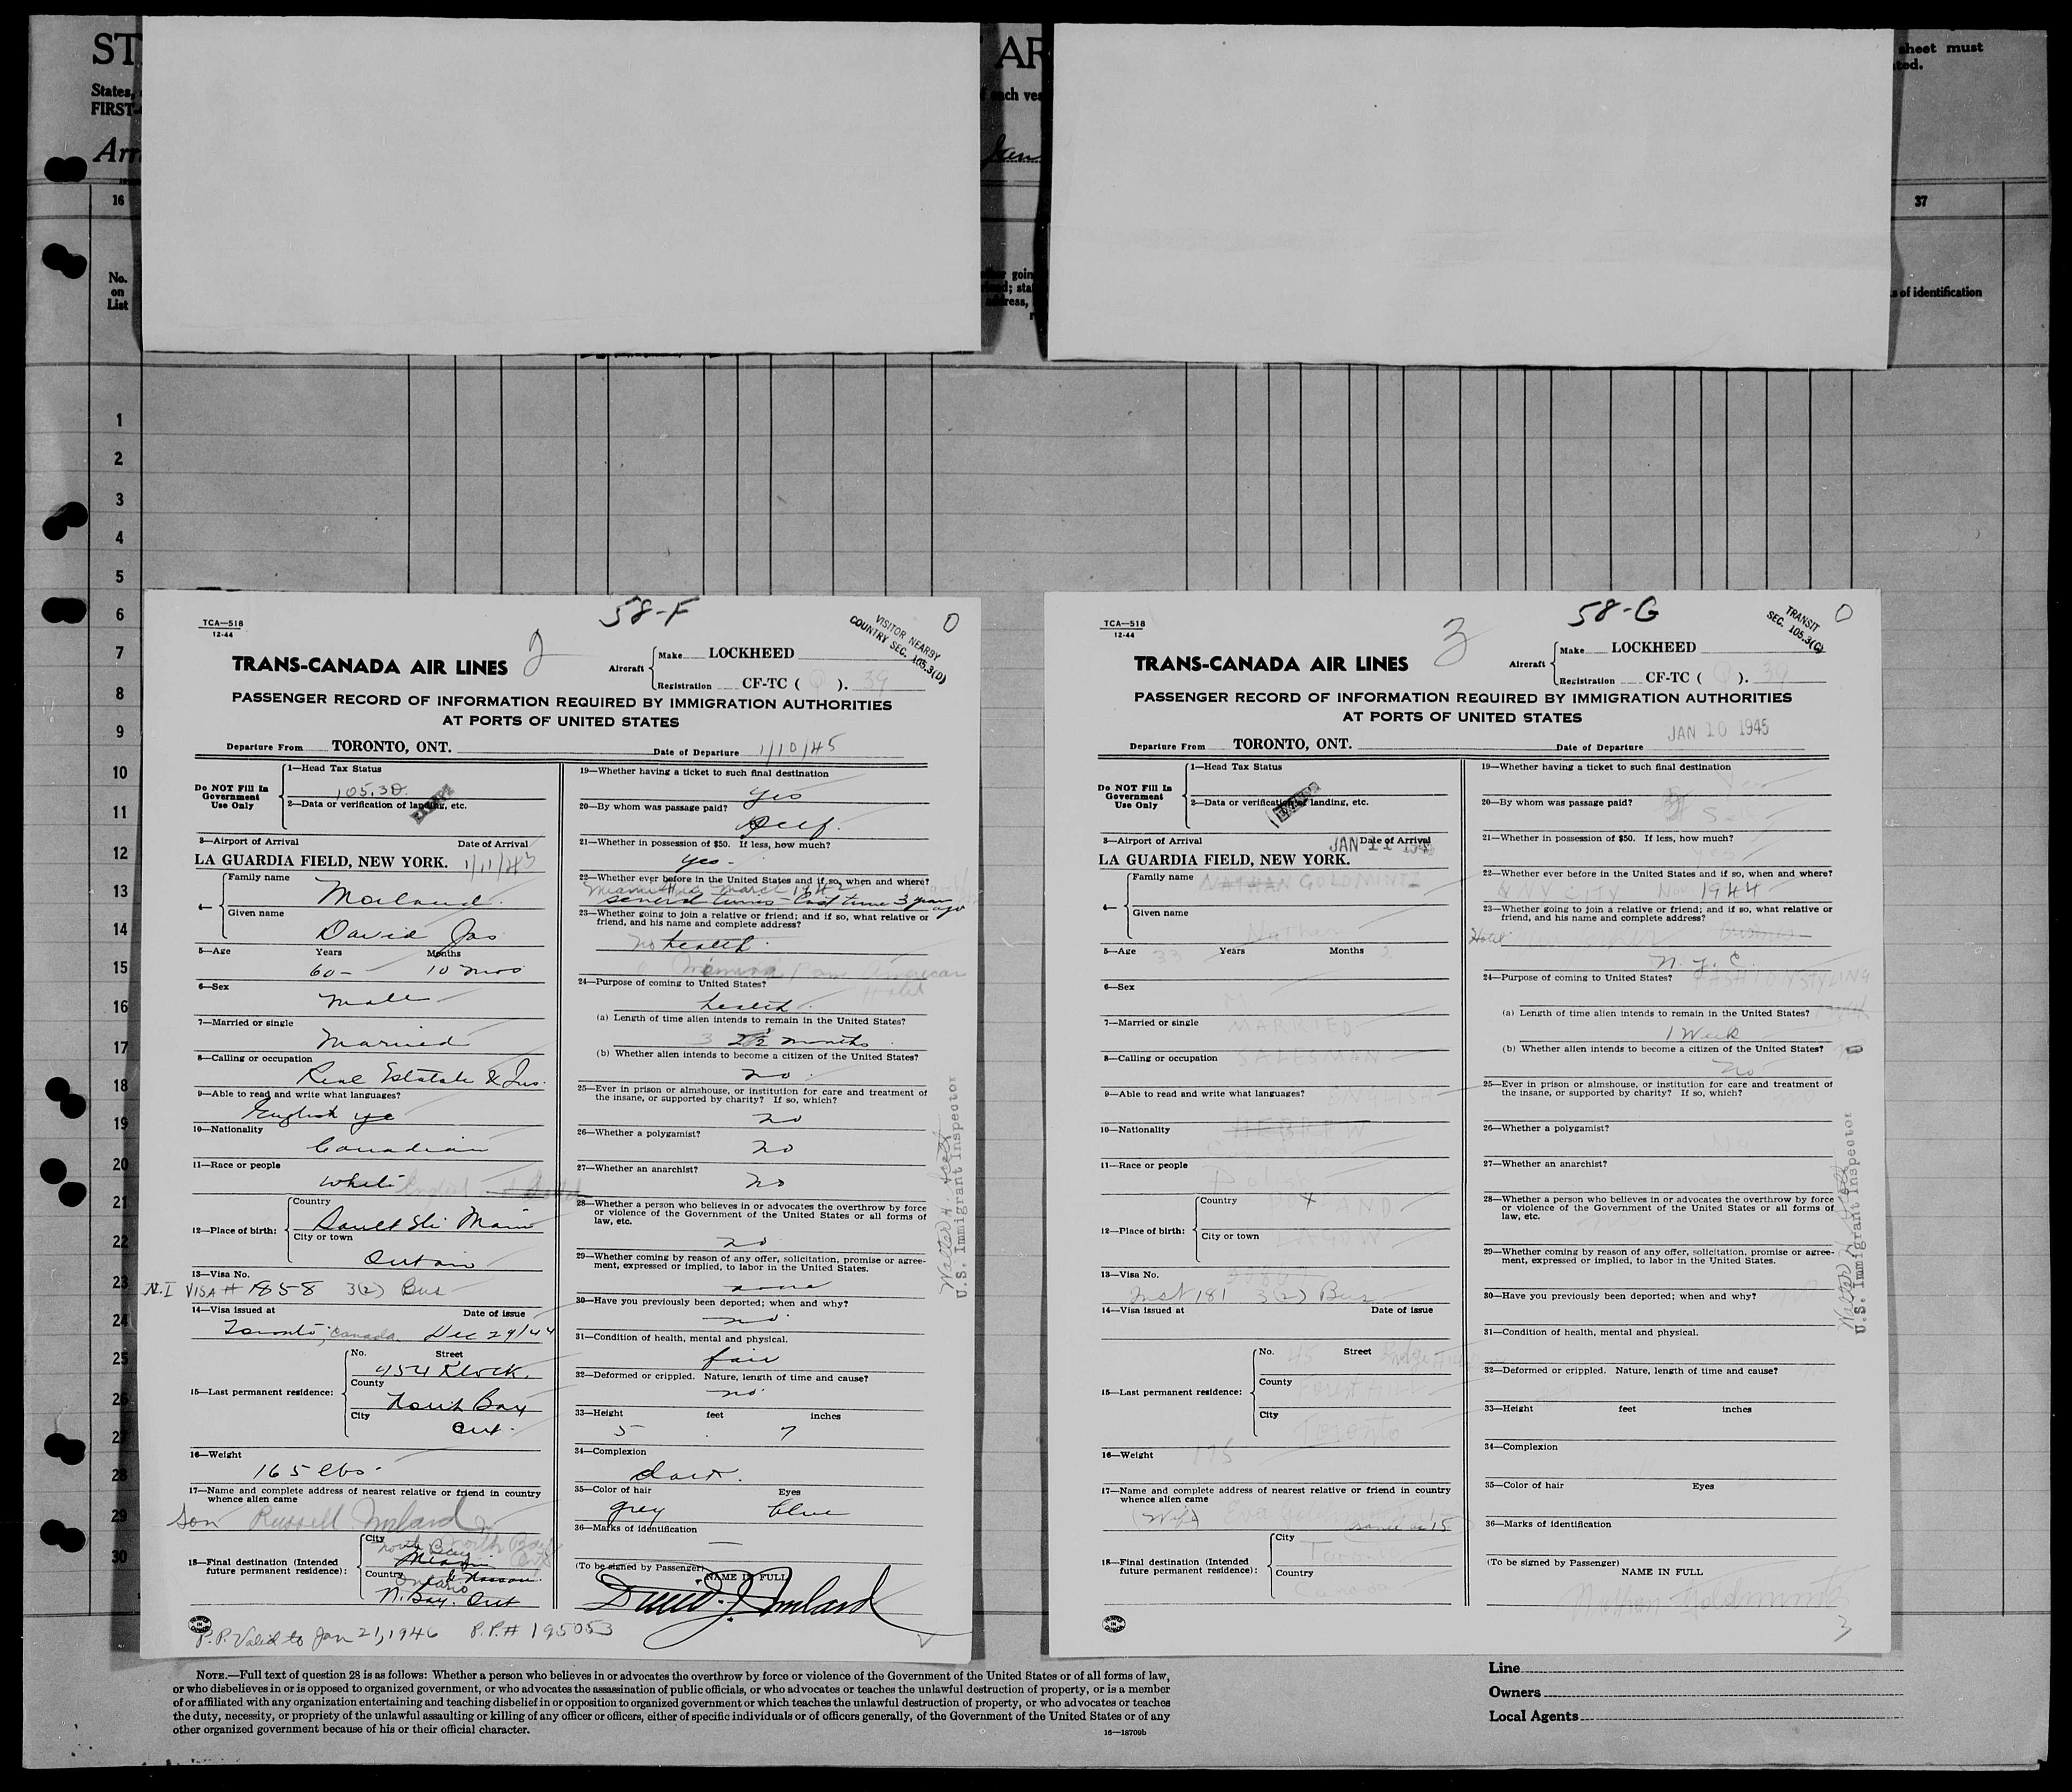 ST
AR
sheet must
ted.
States,
FIRST-
ach ves
Arri
Jan
16
37
No.
on
List
s of identification
1
2
3
4
5
6
7
8
9
10
11
12
13
14
15
16
17
18
19
20
21
22
23
24
25
26
27
28
29
30
58-F
TCA—518
12-44
2
VISITOR NEARBY
COUNTRY SEC. 105.3(D)
0
TRANS-CANADA AIR LINES
Aircraft
Make LOCKHEED
Registration CF-TC ( Q ). 39
PASSENGER RECORD OF INFORMATION REQUIRED BY IMMIGRATION AUTHORITIES
AT PORTS OF UNITED STATES
Departure From TORONTO, ONT. Date of Departure 1/10/45
Do NOT Fill In
Government
Use Only
1—Head Tax Status
105.3D
2—Data or verification of landing, etc.
3—Airport of Arrival Date of Arrival
LA GUARDIA FIELD, NEW YORK. 1/11/45
4—
Family name
Given name
David Jas
5—Age Years Months
60 10 mos
6—Sex
Male
7—Married or single
Married
8—Calling or occupation
Real Estate & Ins.
9—Able to read and write what languages?
English yes
10—Nationality
Canadian
11—Race or people
White English
12—Place of birth:
Country
Sault Ste Marie
City or town
Ontario
13—Visa No.
N.I VISA # 1858 3(2) Bus
14—Visa issued at Date of issue
Toronto, Canada. Dec 29/44
15—Last permanent residence:
No. Street
454 Klock.
County
North Bay
City
Ont.
16—Weight
165 lbs.
17—Name and complete address of nearest relative or friend in country
whence alien came
Son Russell
18—Final destination (Intended
future permanent residence):
City
North Bay
Miami
Country
Ontario
N. Bay. Ont
P.P. Valid to Jan 21, 1946 P.P.# 195053
19—Whether having a ticket to such final destination
yes
20—By whom was passage paid?
Self.
21—Whether in possession of $50. If less, how much?
yes
22—Whether ever before in the United States and if so, when and where?
Miami Fla March 1942
several times - Last time 3 years ago
23—Whether going to join a relative or friend; and if so, what relative or
friend, and his name and complete address?
no health
Pan American
Hotel
24—Purpose of coming to United States?
health
(a) Length of time alien intends to remain in the United States?
3 2½ months
(b) Whether alien intends to become a citizen of the United States?
no
25—Ever in prison or almshouse, or institution for care and treatment of
the insane, or supported by charity? If so, which?
no
26—Whether a polygamist?
no
27—Whether an anarchist?
no
28—Whether a person who believes in or advocates the overthrow by force
or violence of the Government of the United States or all forms of
law, etc.
no
29—Whether coming by reason of any offer, solicitation, promise or agree-
ment, expressed or implied, to labor in the United States.
none
30—Have you previously been deported; when and why?
no
31—Condition of health, mental and physical.
fair
32—Deformed or crippled. Nature, length of time and cause?
no
33—Height feet inches
5 7
34—Complexion
dark.
35—Color of hair Eyes
grey blue
36—Marks of identification
—
(To be signed by Passenger)
NAME IN FULL
David J.
Walter H.
U.S. Immigrant Inspector
58-G
TCA—518
12-44
3
TRANSIT
SEC. 105.3(C)
0
TRANS-CANADA AIR LINES
Aircraft
Make LOCKHEED
Registration CF-TC ( Q ). 39
PASSENGER RECORD OF INFORMATION REQUIRED BY IMMIGRATION AUTHORITIES
AT PORTS OF UNITED STATES
Departure From TORONTO, ONT. Date of Departure JAN 10 1945
Do NOT Fill In
Government
Use Only
1—Head Tax Status
2—Data or verification of landing, etc.
3—Airport of Arrival Date of Arrival
JAN 11 1945
LA GUARDIA FIELD, NEW YORK.
4—
Family name NATHAN GOLDMINTZ
Given name
Nathan
5—Age 33 Years Months
6—Sex
M
7—Married or single
MARRIED
8—Calling or occupation
SALESMAN
9—Able to read and write what languages? ENGLISH
10—Nationality
HEBREW
11—Race or people
Polish
12—Place of birth:
Country
POLAND
City or town
LAGOW
13—Visa No.
Mst 181 3(2) Bus
14—Visa issued at Date of issue
15—Last permanent residence:
No. 45 Street
County
Forest Hill
City
Toronto
16—Weight
175
17—Name and complete address of nearest relative or friend in country
whence alien came
(Wife) Eva
same as 15
18—Final destination (Intended
future permanent residence):
City
Toronto
Country
Canada
19—Whether having a ticket to such final destination
20—By whom was passage paid?
Self
21—Whether in possession of $50. If less, how much?
yes
22—Whether ever before in the United States and if so, when and where?
NY CITY Nov 1944
23—Whether going to join a relative or friend; and if so, what relative or
friend, and his name and complete address?
Hotel business
N. Y. C.
24—Purpose of coming to United States? FASHION STYLING
(a) Length of time alien intends to remain in the United States?
1 Week
(b) Whether alien intends to become a citizen of the United States?
no
25—Ever in prison or almshouse, or institution for care and treatment of
the insane, or supported by charity? If so, which?
26—Whether a polygamist?
No
27—Whether an anarchist?
28—Whether a person who believes in or advocates the overthrow by force
or violence of the Government of the United States or all forms of
law, etc.
29—Whether coming by reason of any offer, solicitation, promise or agree-
ment, expressed or implied, to labor in the United States.
30—Have you previously been deported; when and why?
31—Condition of health, mental and physical.
32—Deformed or crippled. Nature, length of time and cause?
33—Height feet inches
34—Complexion
35—Color of hair Eyes
36—Marks of identification
(To be signed by Passenger)
NAME IN FULL
Nathan Goldmintz
3
Walter H.
U.S. Immigrant Inspector
NOTE.—Full text of question 28 is as follows: Whether a person who believes in or advocates the overthrow by force or violence of the Government of the United States or of all forms of law,
or who disbelieves in or is opposed to organized government, or who advocates the assassination of public officials, or who advocates or teaches the unlawful destruction of property, or is a member
of or affiliated with any organization entertaining and teaching disbelief in or opposition to organized government or which teaches the unlawful destruction of property, or who advocates or teaches
the duty, necessity, or propriety of the unlawful assaulting or killing of any officer or officers, either of specific individuals or of officers generally, of the Government of the United States or of any
other organized government because of his or their official character.
16—18709b
Line
Owners
Local Agents